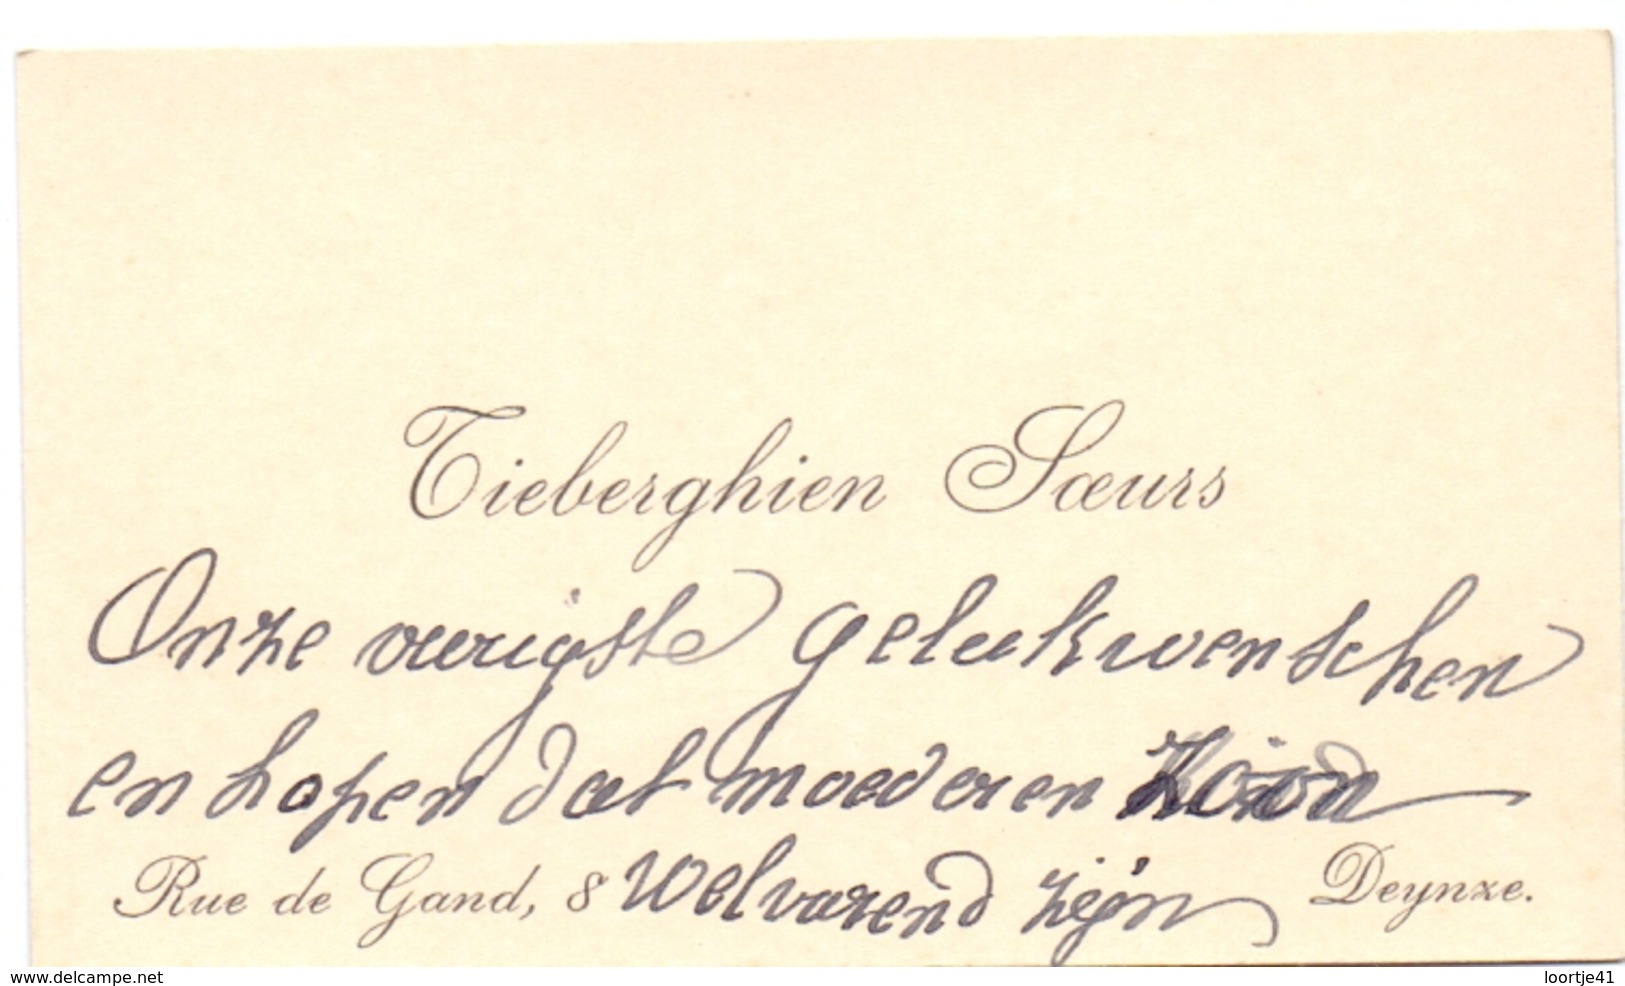 Tieberghien Sœurs
Onze vurigste gelukwenschen
en hopen dat moeder en
Rue de Gand, 8 welvarend zijn Deynze.
www.delcampe.net
loortje41